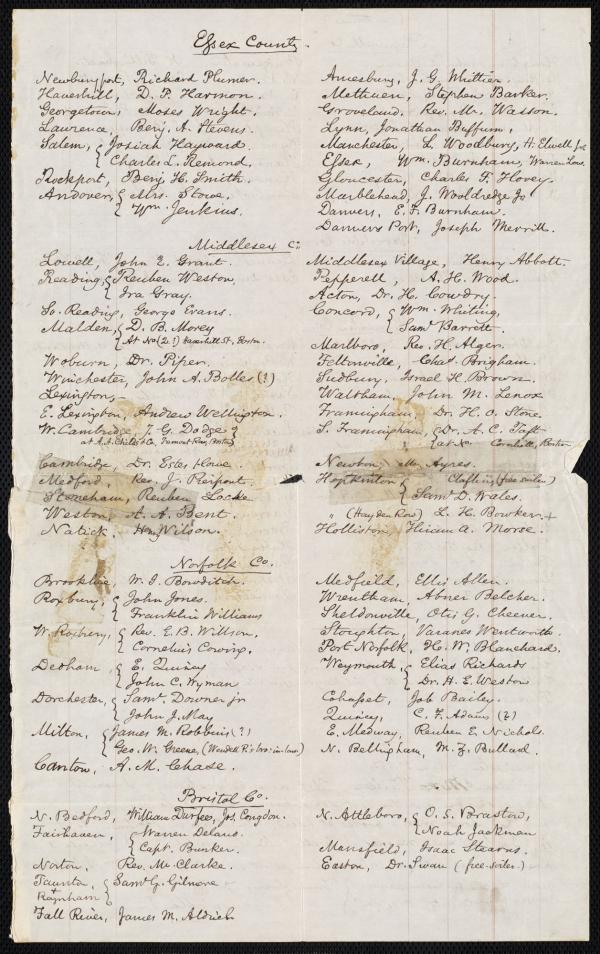 Essex County.
Newburyport, Richard Plumer.
Haverhill, D. P. Harmon.
Georgetown, Moses Wright.
Lawrence, Benj. A. Stevens.
Salem, { Josiah Hayward.
{ Charles L. Remond.
Rockport, Benj. H. Smith.
Andover, { Mrs. Stowe.
{ Wm. Jenkins.
Amesbury, J. G. Whittier.
Methuen, Stephen Barker.
Groveland, Rev. Mr. Wasson.
Lynn, Jonathan Buffum,
Manchester, L. Woodbury, H. Elwell
Essex, Wm. Burnham, Warren
Gloucester, Charles F. Hovey.
Marblehead, J. Wooldredge Jr
Danvers, E. F. Burnham.
Danvers Port, Joseph Merrill.
Middlesex Co.
Lowell, John E. Grant.
Reading, { Reuben Weston,
{ Ira Gray.
So. Reading, George Evans.
Malden, { D. B. Morey
{ At No (2?) Haverhill St, Boston.
Woburn, Dr. Piper.
Winchester, John A. Bolles (?)
Lexington,
E. Lexington, Andrew Wellington.
W. Cambridge, J. G. Dodge
at A. A. Childs & Co, Tremont Row, Boston
Cambridge, Dr. Estes Howe.
Medford, Rev. J. Pierpont.
Stoneham, Reuben Locke
Weston, A. A. Bent.
Natick, Hny Wilson.
Middlesex Village, Henry Abbott.
Pepperell, A. H. Wood.
Acton, Dr. H. Cowdry.
Concord, { Wm. Whiting,
{ Saml Barrett.
Marlboro, Rev. H. Alger.
Feltonville, Chas. Brigham.
Sudbury, Israel H. Brown.
Waltham, John M. Lenox
Framingham, Dr. H. O. Stone.
S. Framingham, { Dr. A. C. Taft
{ at No. Cornhill, Boston
Newton, Ayres.
Hopkinton { Claflin (free soiler)
{ Saml. D. Wales.
" (Hayden Row) L. H. Bowker +
Holliston, Hiram A. Morse.
Norfolk Co.
Brookline, W. I. Bowditch.
Roxbury, { John Jones.
{ Franklin Williams
W. Roxbury, { Rev. E. B. Willson,
{ Cornelius Cowing.
Dedham { E. Quincy
{ John C. Wyman
Dorchester, { Saml. Downer jr
{ John J. May
Milton, { James M. Robbins (?)
{ Geo. W. Greene, (Wendell P.'s bro: in-law)
Canton, A. M. Chase.
Medfield, Ellis Allen.
Wrentham, Abner Belcher.
Sheldonville, Otis G. Cheever.
Stoughton, Varanes Wentworth.
Port Norfolk, H. W. Blanchard.
Weymouth, { Elias Richards
{ Dr. H. E. Weston
Cohasset, Job Bailey.
Quincy, C. F. Adams (?)
E. Medway, Reuben E. Nichols.
N. Bellingham, M. Z. Bullard.
Bristol Co.
N. Bedford, William Durfee, Jos. Congdon.
Fairhaven, { Warren Delano.
{ Capt. Bunker.
Norton, Rev. Mr. Clarke.
Taunton, { Saml G. Gilmore
+
Raynham {
Fall River, James M. Aldrich
N. Attleboro, { O. S. Brastow,
{ Noah Jackman
Mansfield, Isaac Stearns.
Easton, Dr. Swan (free-soiler.)